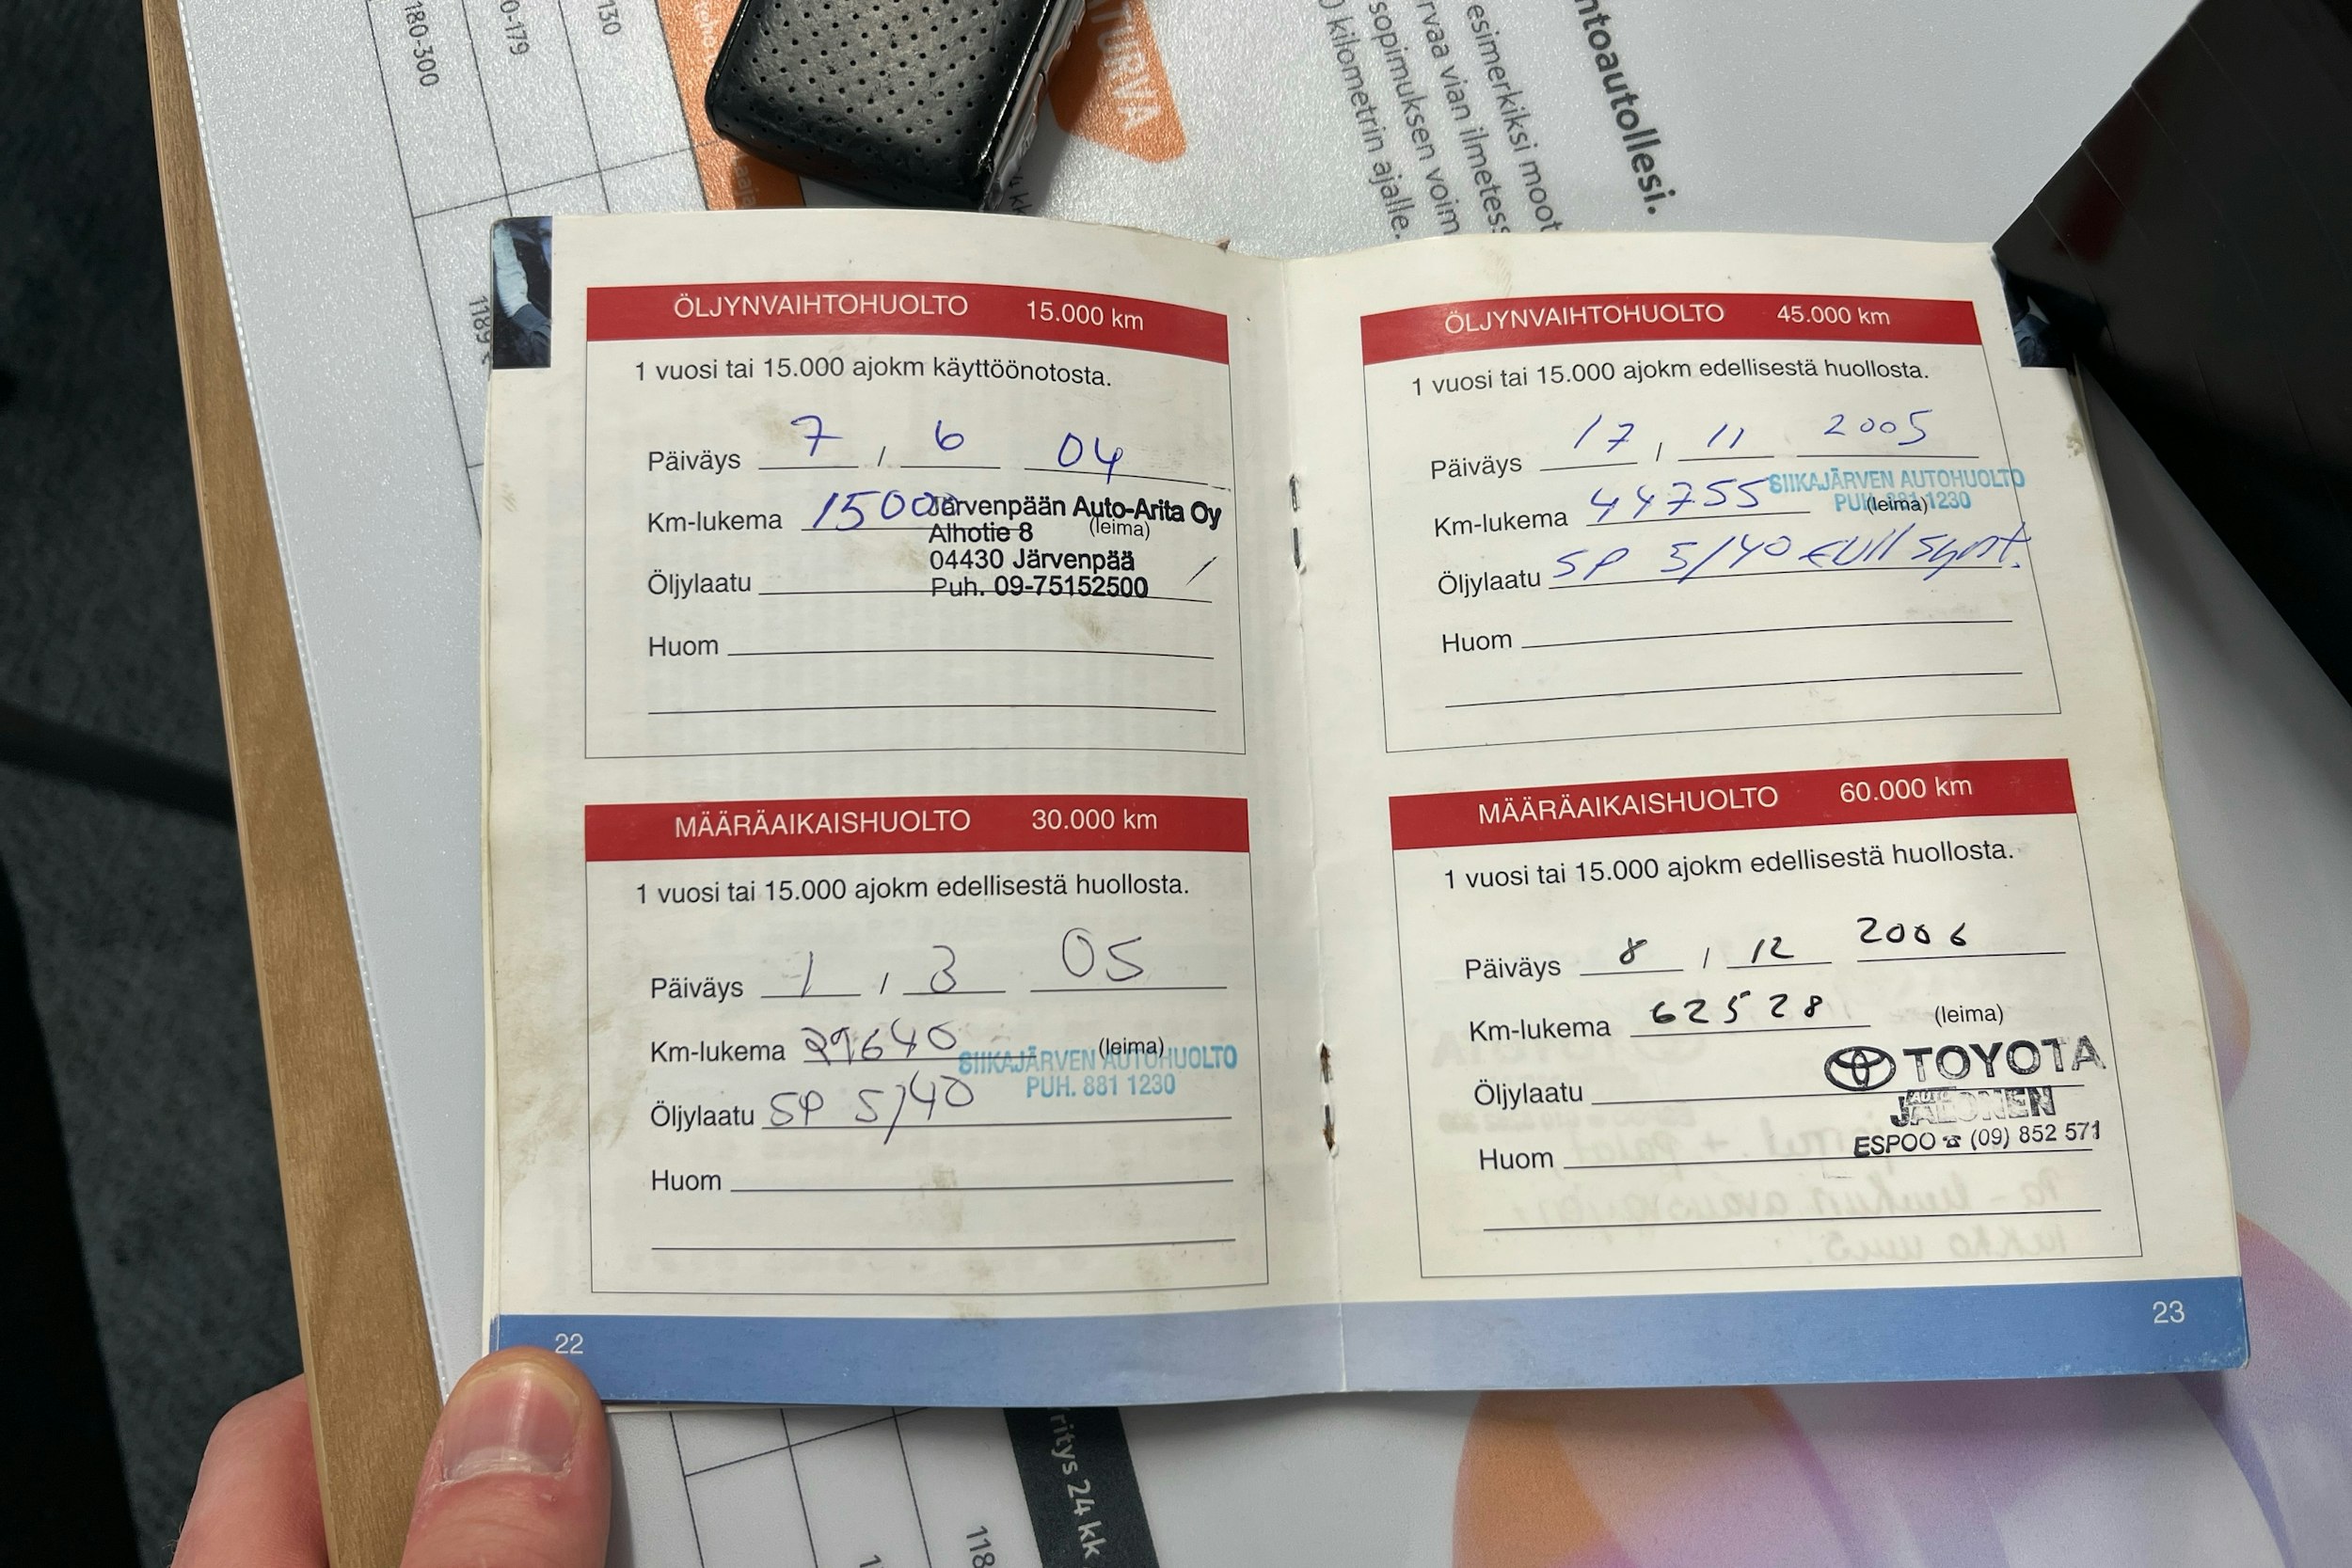 180-300
0-179
130
ATURVA
ntoautollesi.
esimerkiksi moot
rvaa vian ilmetess
sopimuksen voim
) kilometrin ajalle.
4 kk
1189
ÖLJYNVAIHTOHUOLTO 15.000 km
1 vuosi tai 15.000 ajokm käyttöönotosta.
Päiväys 7 / 6 04
Km-lukema 15000 (leima)
Järvenpään Auto-Arita Oy
Alhotie 8
04430 Järvenpää
Öljylaatu
Puh. 09-75152500
Huom
MÄÄRÄAIKAISHUOLTO 30.000 km
1 vuosi tai 15.000 ajokm edellisestä huollosta.
Päiväys 1 / 3 05
Km-lukema 29640 (leima)
SIIKAJÄRVEN AUTOHUOLTO
PUH. 881 1230
Öljylaatu SP 5/40
Huom
22
ÖLJYNVAIHTOHUOLTO 45.000 km
1 vuosi tai 15.000 ajokm edellisestä huollosta.
Päiväys 17 / 11 2005
SIIKAJÄRVEN AUTOHUOLTO
PUH. 881 1230
Km-lukema 44755 (leima)
Öljylaatu SP 5/40 Full Synt.
Huom
MÄÄRÄAIKAISHUOLTO 60.000 km
1 vuosi tai 15.000 ajokm edellisestä huollosta.
Päiväys 8 / 12 2006
Km-lukema 62528 (leima)
TOYOTA
Öljylaatu
AUTO
JALONEN
ESPOO ☎ (09) 852 571
Huom
23
ritys 24 kk
118